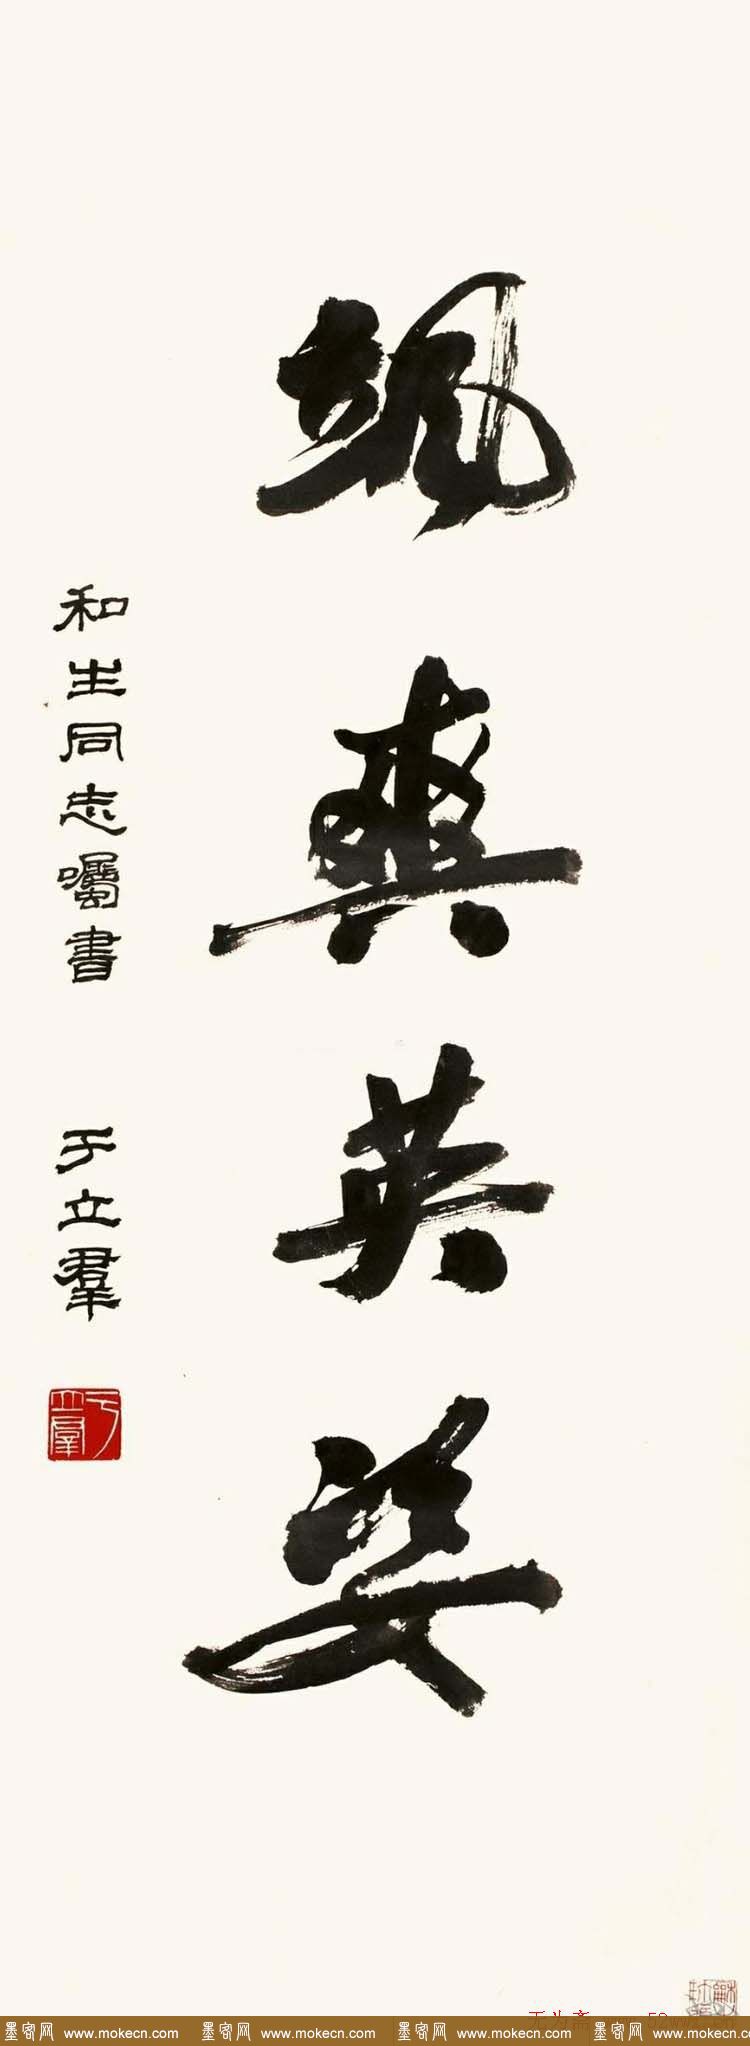 颯爽英姿
和生同志囑書 于立羣
于立羣
无为斋
墨客网 www.mokecn.com 墨客网 www.mokecn.com 墨客网 www.mokecn.com 墨客网 www.mokecn.com